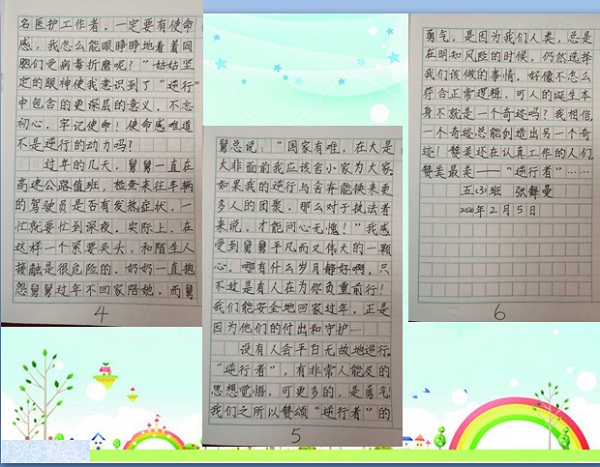 名医护工作者，一定要有使命
感，我怎么能眼睁睁地看着同
胞们受病毒折磨呢？”姑姑坚
定的眼神使我意识到了“逆行”
中包含的更深层的意义，不忘
初心，牢记使命！使命感难道
不是逆行的动力吗？
过年的几天，舅舅一直在
高速公路值班，检查来往车辆
的驾驶员是否有发热症状，一
忙就要忙到深夜。实际上，在
这样一个紧要关头，和陌生人
接触是很危险的，奶奶一直抱
怨舅舅过年不回家陪她，而舅
4
舅总说：“国家有难，在大是
大非面前我应该舍小家为大家，
如果我的逆行与舍弃能换来更
多人的团聚，那么对于执法者
来说，才能问心无愧！”我感
受到舅舅平凡而又伟大的一颗
心，哪有什么岁月静好啊，只
不过是有人在为你负重前行！
我们能安全地回家过年，正是
因为他们的付出和守护…
没有人会平白无故地逆行。
“逆行者”，有非常人能及的
思想觉悟，可更多的，是勇气！
我们之所以赞颂“逆行者”的
5
勇气，是因为我们人类，总是
在明知风险的时候，仍然选择
我们该做的事情，好像不怎么
符合正常逻辑，可人的诞生本
身不就是一个奇迹吗？我相信，
一个奇迹总能创造出另一个奇
迹！赞美还在认真工作的人们，
赞美最美——“逆行者”……
五（3）班 张舒曼
2020年2月5日
6